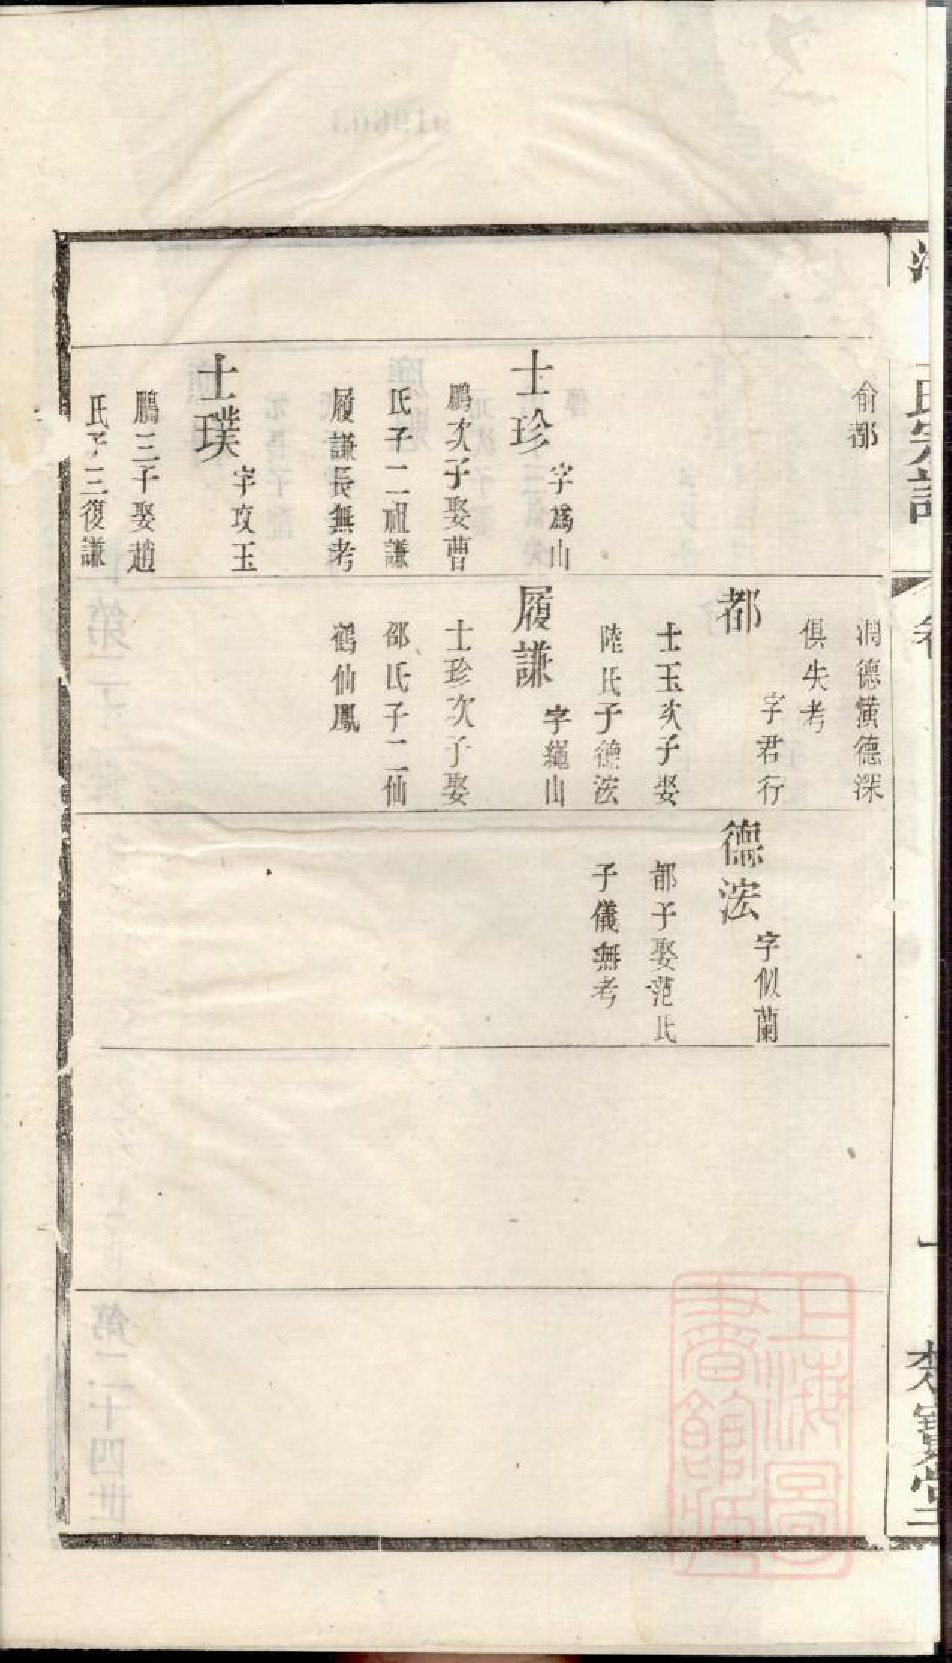 氏宗譜
俞都
士珍 字爲山
鵬次子娶曹
氏子二祖謙
履謙長無考
士璞 字攻玉
鵬三子娶趙
氏子三復謙
潤德濱德深
俱失考
都 字君行
士玉次子娶
陸氏子德浤
履謙 字繩山
士珍次子娶
邵氏子二仙
鶴仙鳳
德浤 字似蘭
都子娶范氏
子儀無考
上海圖
書館藏